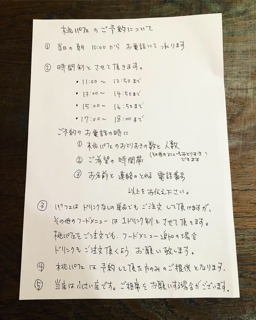 桃パフェのご予約について
① 当日の朝 10:00から お電話にて承ります
② 時間制とさせて頂きます。
・11:00〜12:50まで
・13:00〜14:50まで
・15:00〜16:50まで
・17:00〜18:00まで
ご予約のお電話の時に
① 桃パフェのおとりおきの数と人数
② ご希望の時間帯
③ お名前と連絡のとれる電話番号
以上をお伝え下さい。
③ パフェはドリンクなしの単品でもご注文して頂けますが、
その他のフードメニューは1ドリンク制とさせて頂いてます。
桃パフェをご注文でも、フードメニュー追加の場合
ドリンクもご注文頂くよう お願い致します。
④ 桃パフェは予約して頂いた方のみのご提供となります。
⑤ 当店は小さい店です。ご相席をお願いする場合がございます。